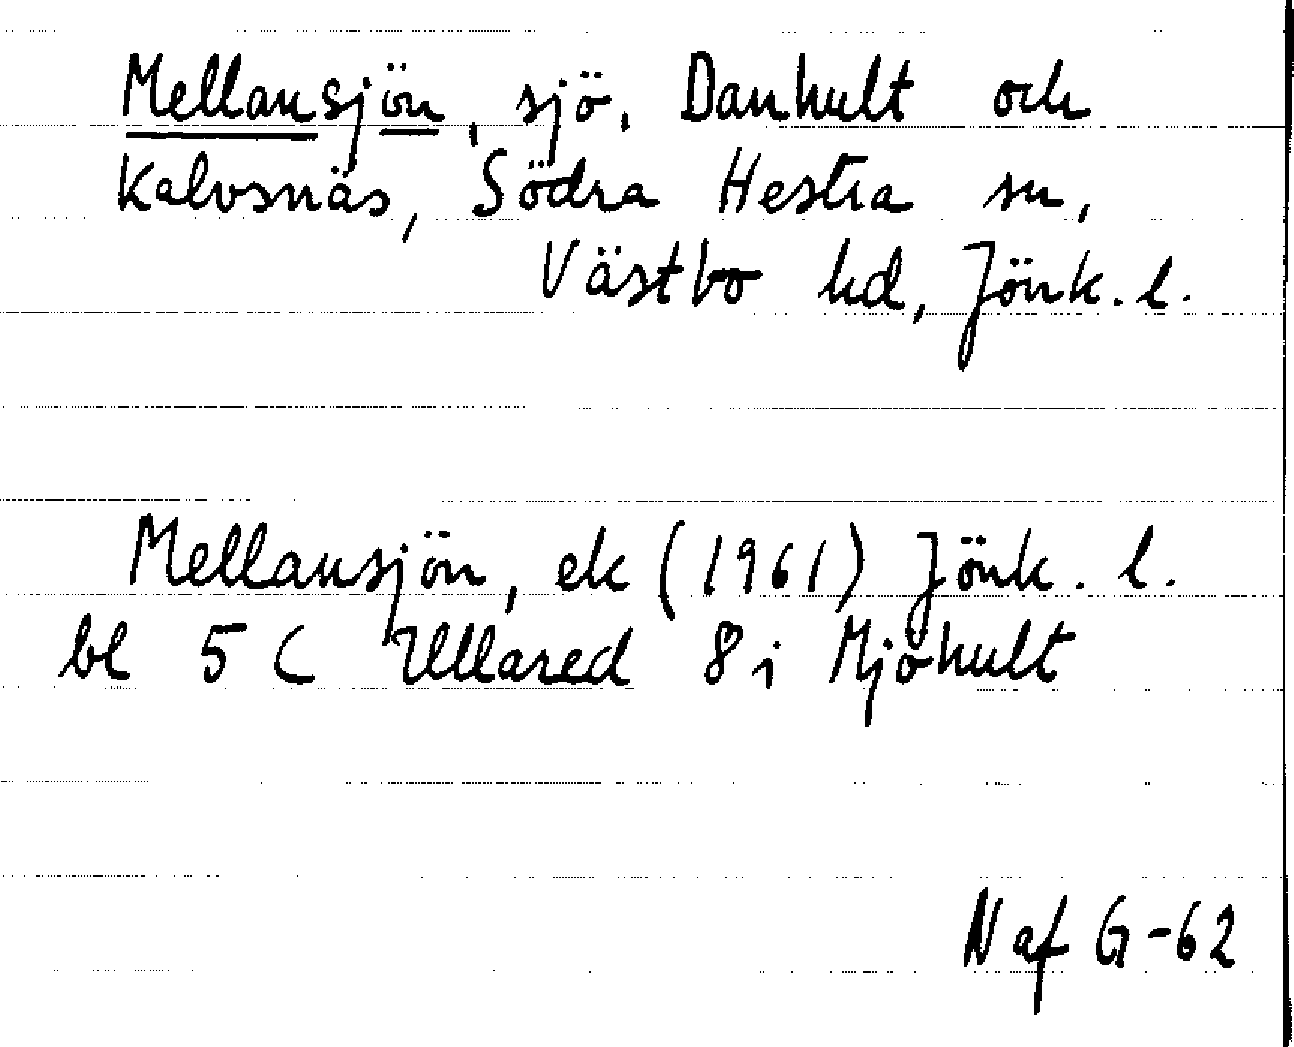 Mellansjön, sjö. Danhult och
Kalvsnäs, Södra Hestra sn,
Västbo hd, Jönk. l.
Mellansjön, ek (1961) Jönk. l.
bl 5 C Ullared 8 i Mjöhult
N af G-62